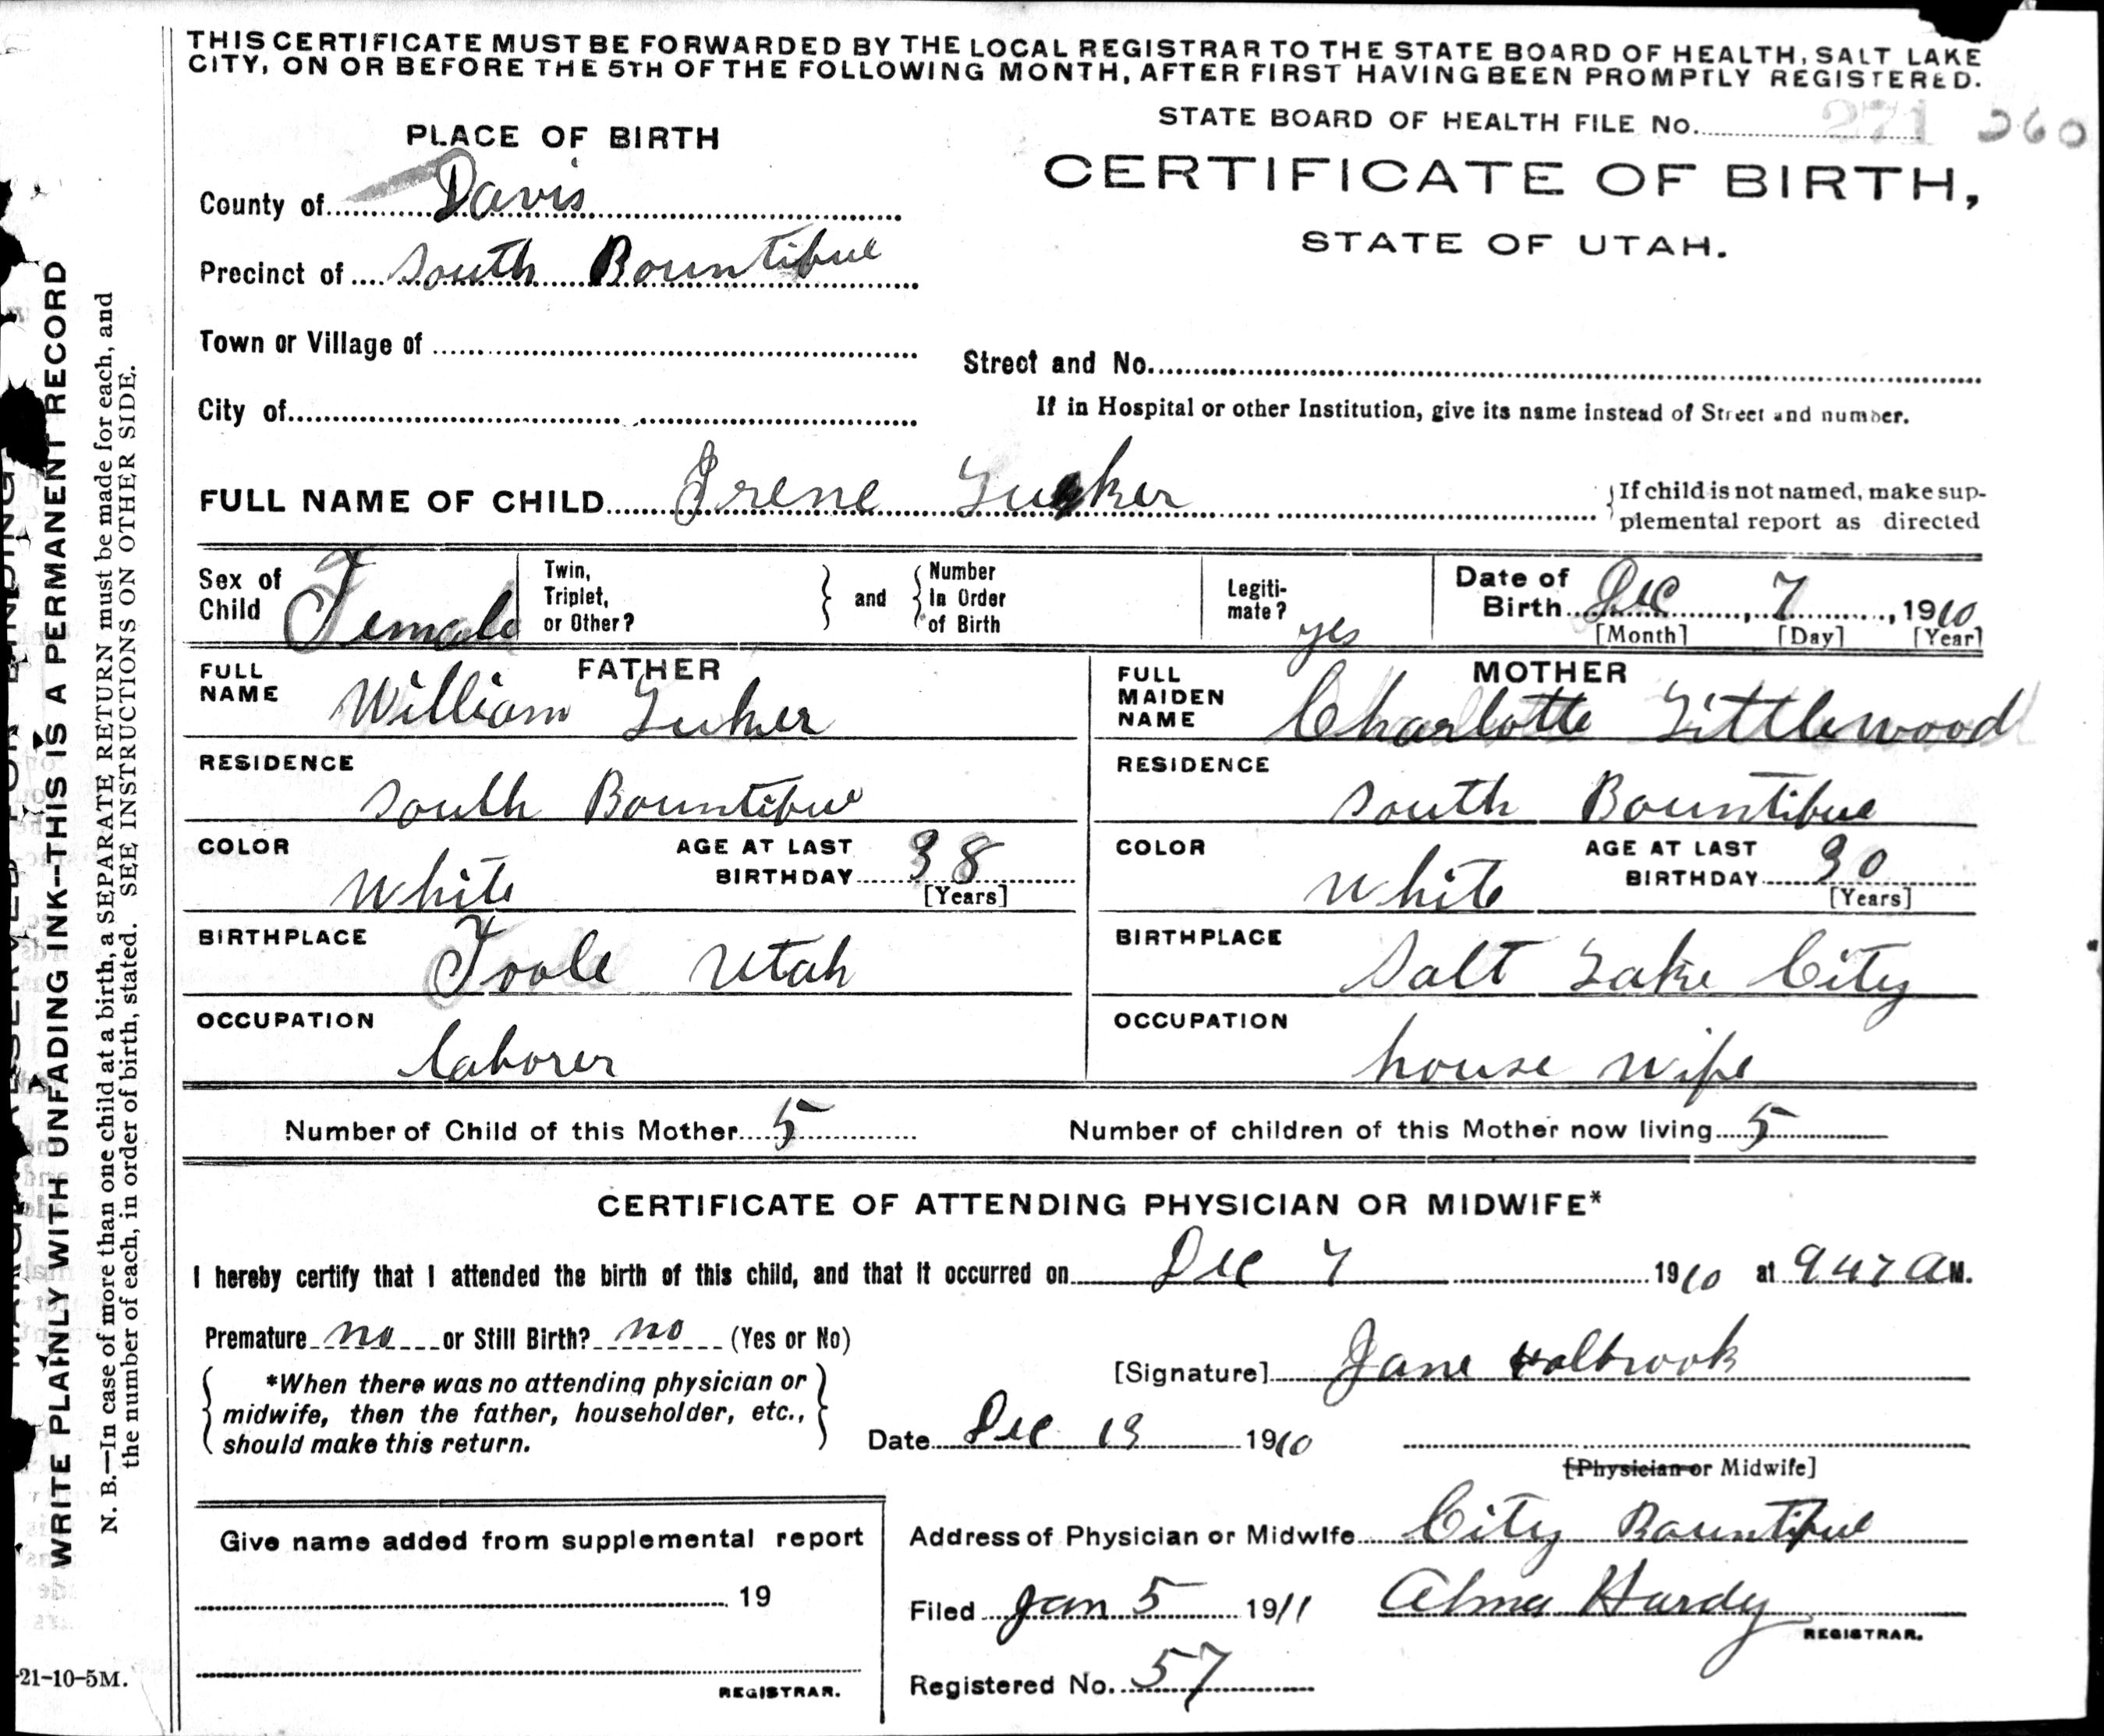 THIS CERTIFICATE MUST BE FORWARDED BY THE LOCAL REGISTRAR TO THE STATE BOARD OF HEALTH, SALT LAKE
CITY, ON OR BEFORE THE 5TH OF THE FOLLOWING MONTH, AFTER FIRST HAVING BEEN PROMPTLY REGISTERED.
STATE BOARD OF HEALTH FILE No. 271 260
PLACE OF BIRTH
CERTIFICATE OF BIRTH,
STATE OF UTAH.
County of Davis
Precinct of South Bountiful
Town or Village of
Street and No.
City of
If in Hospital or other Institution, give its name instead of Street and number.
FULL NAME OF CHILD Irene Tucker
{If child is not named, make sup-
plemental report as directed
Sex of Child Female
Twin, Triplet, or Other? } and { Number In Order of Birth
Legiti-mate? yes
Date of Birth Dec, 7, 1910
[Month] [Day] [Year]
FATHER
FULL NAME William Tuker
RESIDENCE South Bountiful
COLOR White
AGE AT LAST BIRTHDAY 38
[Years]
BIRTHPLACE Toole Utah
OCCUPATION laborer
MOTHER
FULL MAIDEN NAME Charlotte Littlewood
RESIDENCE South Bountiful
COLOR White
AGE AT LAST BIRTHDAY 30
[Years]
BIRTHPLACE Salt Lake City
OCCUPATION house wife
Number of Child of this Mother 5
Number of children of this Mother now living 5
CERTIFICATE OF ATTENDING PHYSICIAN OR MIDWIFE*
I hereby certify that I attended the birth of this child, and that it occurred on Dec 7 1910 at 9 47 AM.
Premature no or Still Birth? no (Yes or No)
*When there was no attending physician or
midwife, then the father, householder, etc.,
should make this return.
[Signature] Jane Holbrook
Date Dec 19 1910
[Physician or Midwife]
Give name added from supplemental report
19
REGISTRAR.
Address of Physician or Midwife City Bountiful
Filed Jan 5 1911 Alma Hardy
REGISTRAR.
Registered No. 57
WRITE PLAINLY WITH UNFADING INK—THIS IS A PERMANENT RECORD
N. B.—In case of more than one child at a birth, a SEPARATE RETURN must be made for each, and
the number of each, in order of birth, stated. SEE INSTRUCTIONS ON OTHER SIDE.
21-10-5M.